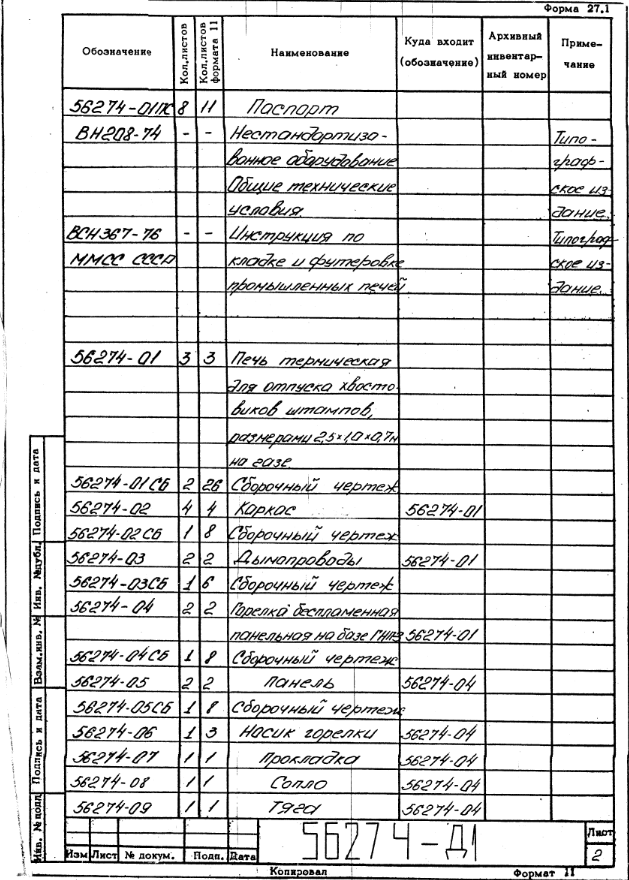 Форма 27.1
Обозначение Кол.листов Кол.листов формата 11 Наименование Куда входит (обозначение) Архивный инвентарный номер Примечание
56274-01ПС 8 11 Паспорт
ВН208-74 - - Нестандартизо- Типо-
ванное оборудование граф-
Общие технические ское из-
условия дание.
ВСН367-76 - - Инструкция по Типограф
ММСС СССР кладке и футеровке ское из-
промышленных печей дание.
56274-01 3 3 Печь термическая
для отпуска хвосто-
виков штампов,
размерами 2,5×1,0×0,7м
на газе.
56274-01СБ 2 26 Сборочный чертеж
56274-02 4 4 Каркас 56274-01
56274-02СБ 1 8 Сборочный чертеж
56274-03 2 2 Дымопроводы 56274-01
56274-03СБ 1 6 Сборочный чертеж
56274-04 2 2 Горелка беспламенная
панельная на базе 56274-01
56274-04СБ 1 8 Сборочный чертеж
56274-05 2 2 Панель 56274-04
56274-05СБ 1 8 Сборочный чертеж
56274-06 1 3 Носик горелки 56274-04
56274-07 1 1 Прокладка 56274-04
56274-08 1 1 Сопло 56274-04
56274-09 1 1 Тяга 56274-04
Инв. № подл. Подпись и дата Взам.инв. № Инв. №дубл. Подпись и дата
56274-Д1
Лист
2
Изм Лист № докум. Подп. Дата
Копировал Формат 11